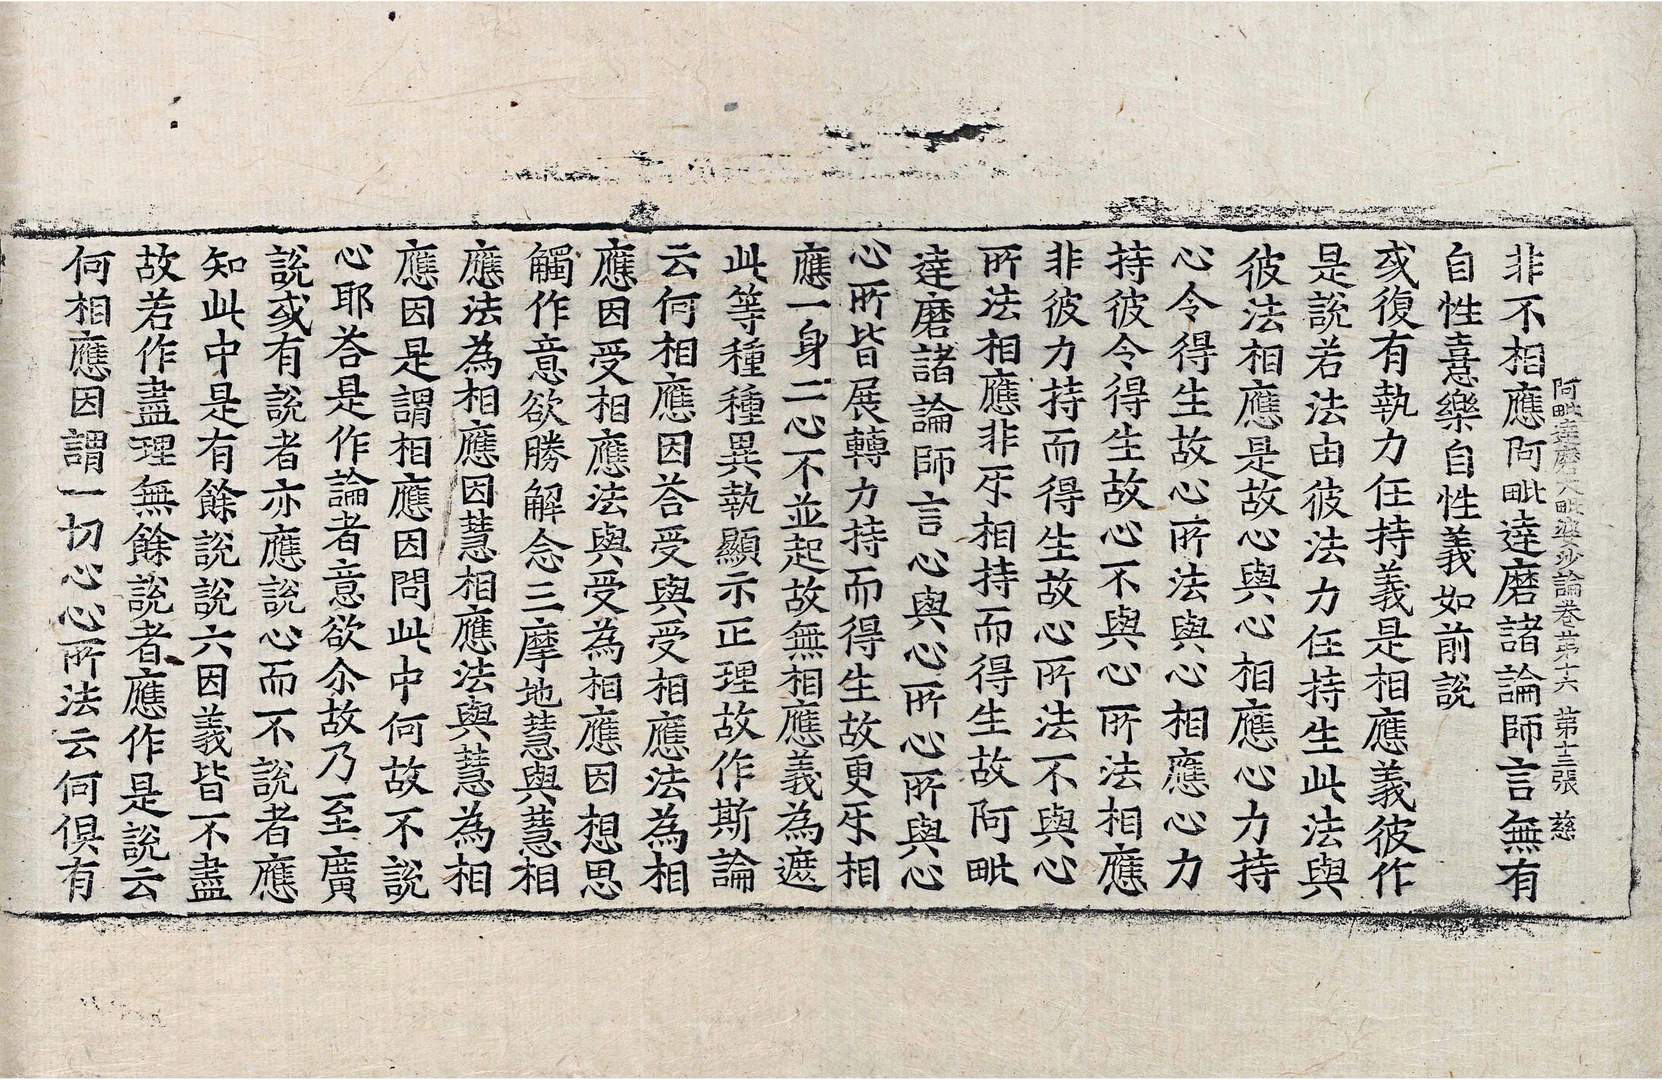 阿毗達磨大毗婆沙論卷第十六 第十三張 慈
非不相應阿毗達磨諸論師言無有
自性憙樂自性義如前說
或復有執力任持義是相應義彼作
是說若法由彼法力任持生此法與
彼法相應是故心與心相應心力持
心令得生故心所法與心相應心力
持彼令得生故心不與心所法相應
非彼力持而得生故心所法不與心
所法相應非互相持而得生故阿毗
達磨諸論師言心與心所心所與心
心所皆展轉力持而得生故更互相
應一身二心不並起故無相應義為遮
此等種種異執顯示正理故作斯論
云何相應因荅受與受相應法為相
應因受相應法與受為相應因想思
觸作意欲勝解念三摩地慧與慧相
應法為相應因慧相應法與慧為相
應因是謂相應因問此中何故不說
心耶荅是作論者意欲尒故乃至廣
說或有說者亦應說心而不說者應
知此中是有餘說說六因義皆不盡
故若作盡理無餘說者應作是說云
何相應因謂一切心心所法云何俱有